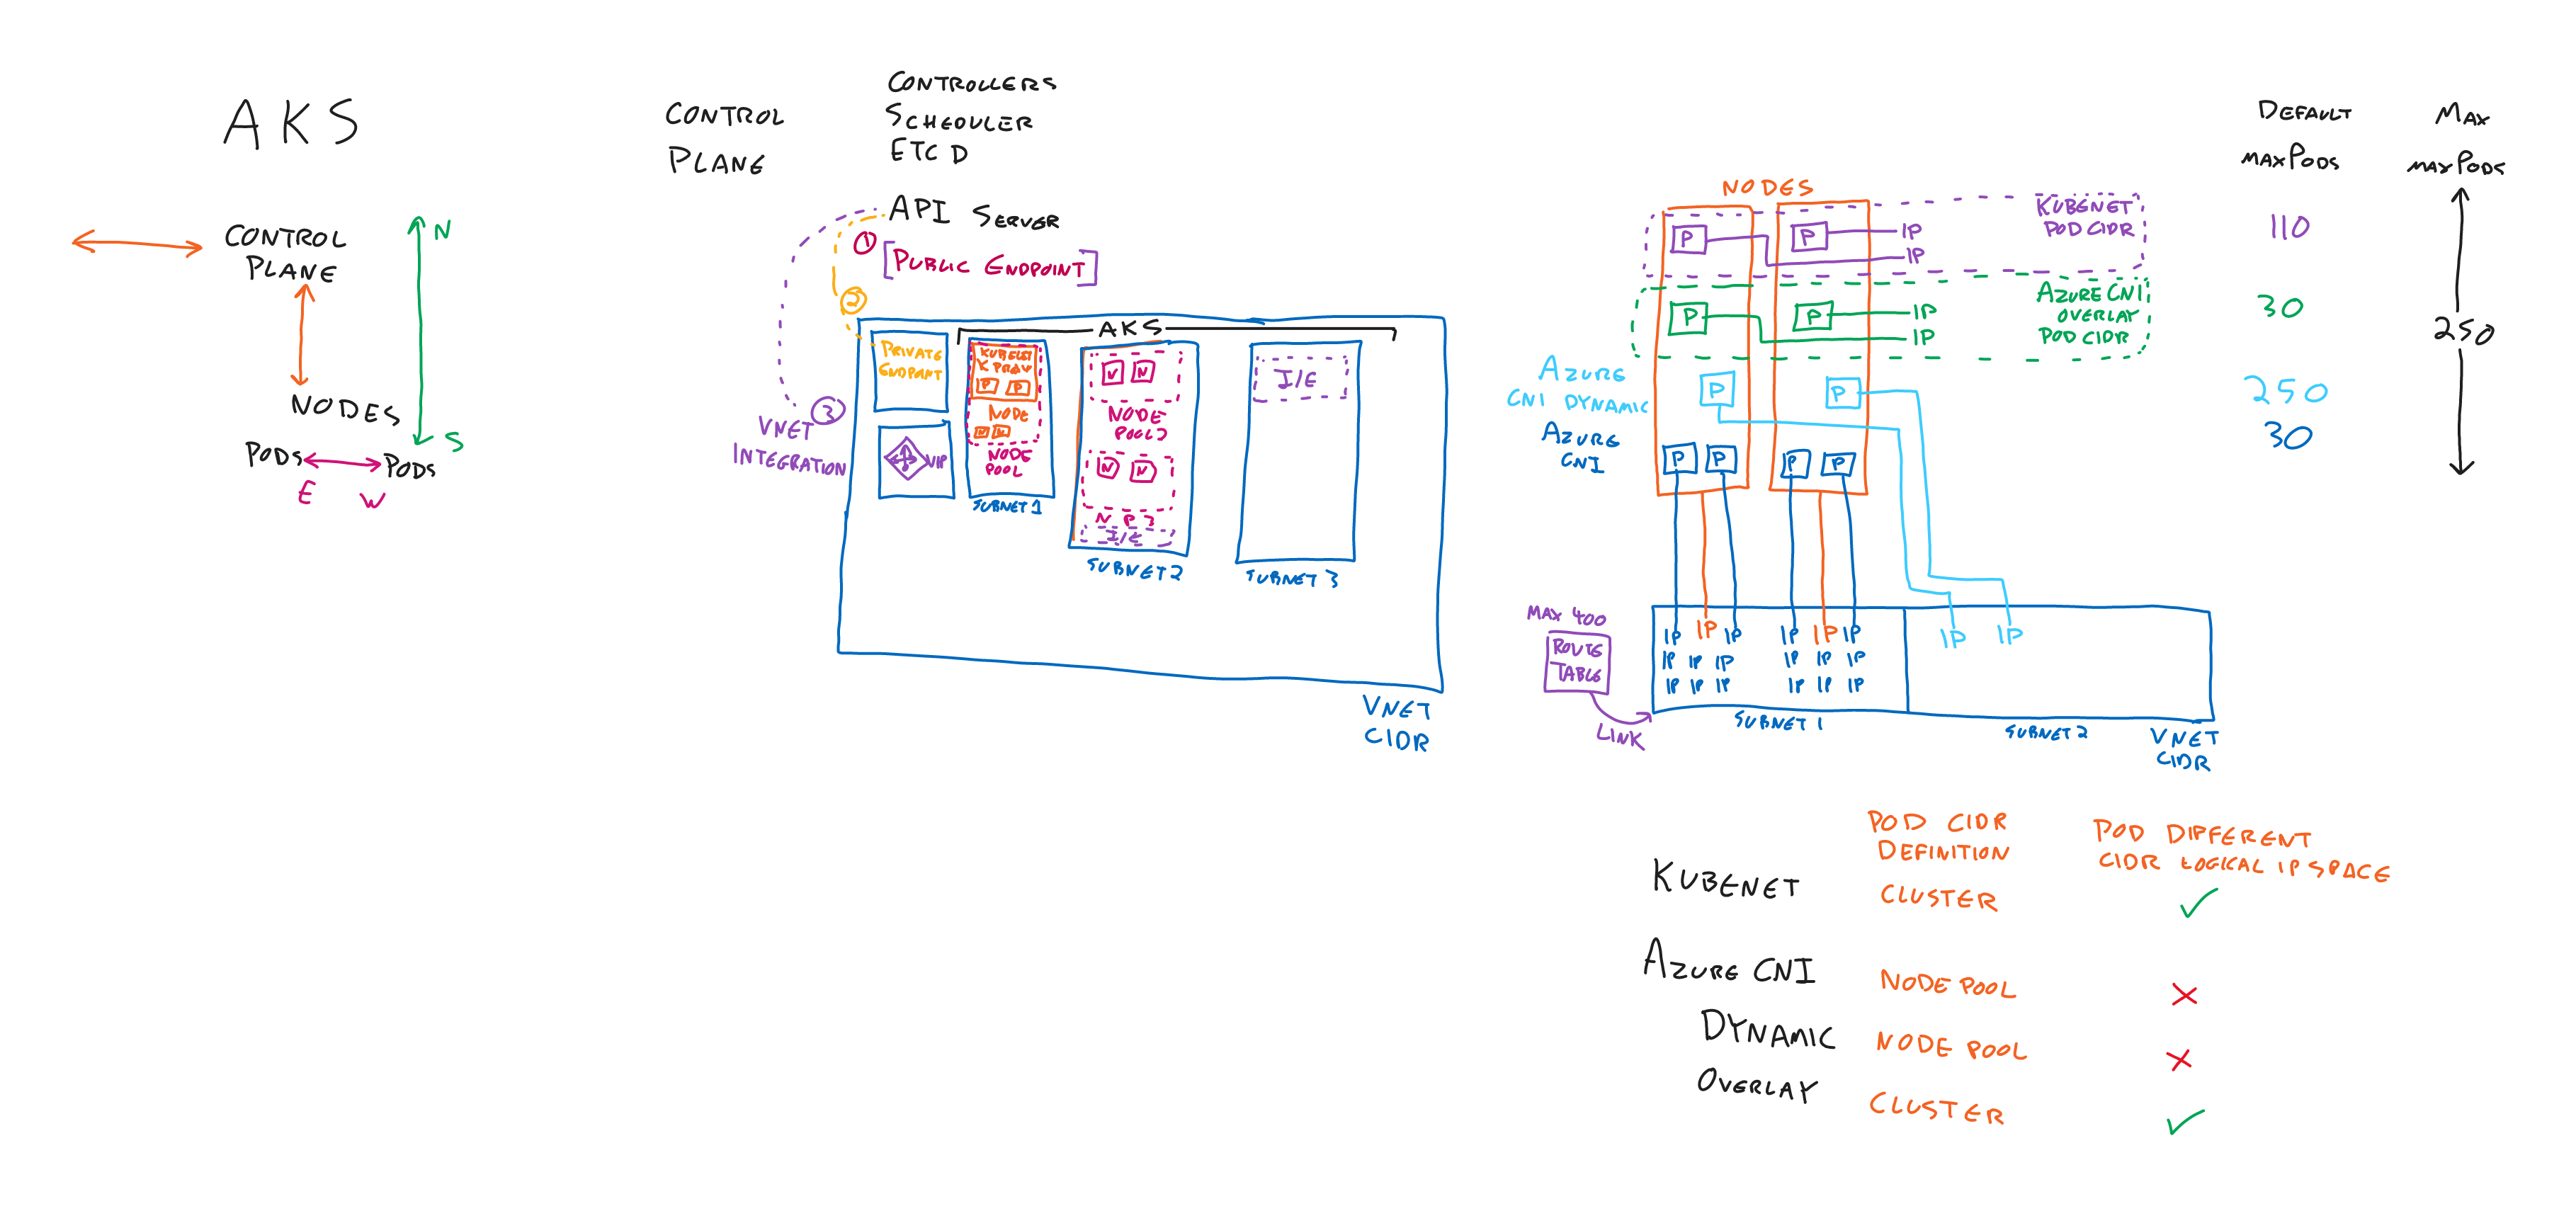 AKS
CONTROL
PLANE
N
NODES
S
PODS PODS
E W
CONTROL
PLANE
CONTROLLERS
SCHEDULER
ETCD
API SERVER
1
[PUBLIC ENDPOINT]
2
3
VNET
INTEGRATION
AKS
PRIVATE
ENDPOINT
VIP
KUBELET
K PROXY
P P
NODE
N N
NODE
POOL
SUBNET 1
N N
NODE
POOL2
N N
N P 3
I/E
SUBNET 2
I/E
SUBNET 3
VNET
CIDR
NODES
P P IP
IP
KUBENET
POD CIDR
P P IP
IP
AZURE CNI
OVERLAY
POD CIDR
AZURE
CNI DYNAMIC
P P
AZURE
CNI
P P P P
DEFAULT
MAXPODS
110
30
250
30
MAX
MAXPODS
250
MAX 400
ROUTE
TABLE
LINK
IP IP IP IP IP IP IP IP
IP IP IP IP IP IP
IP IP IP IP IP IP
SUBNET 1
SUBNET 2
VNET
CIDR
POD CIDR
DEFINITION
POD DIFFERENT
CIDR LOGICAL IP SPACE
KUBENET CLUSTER ✓
AZURE CNI NODE POOL ✗
DYNAMIC NODE POOL ✗
OVERLAY CLUSTER ✓